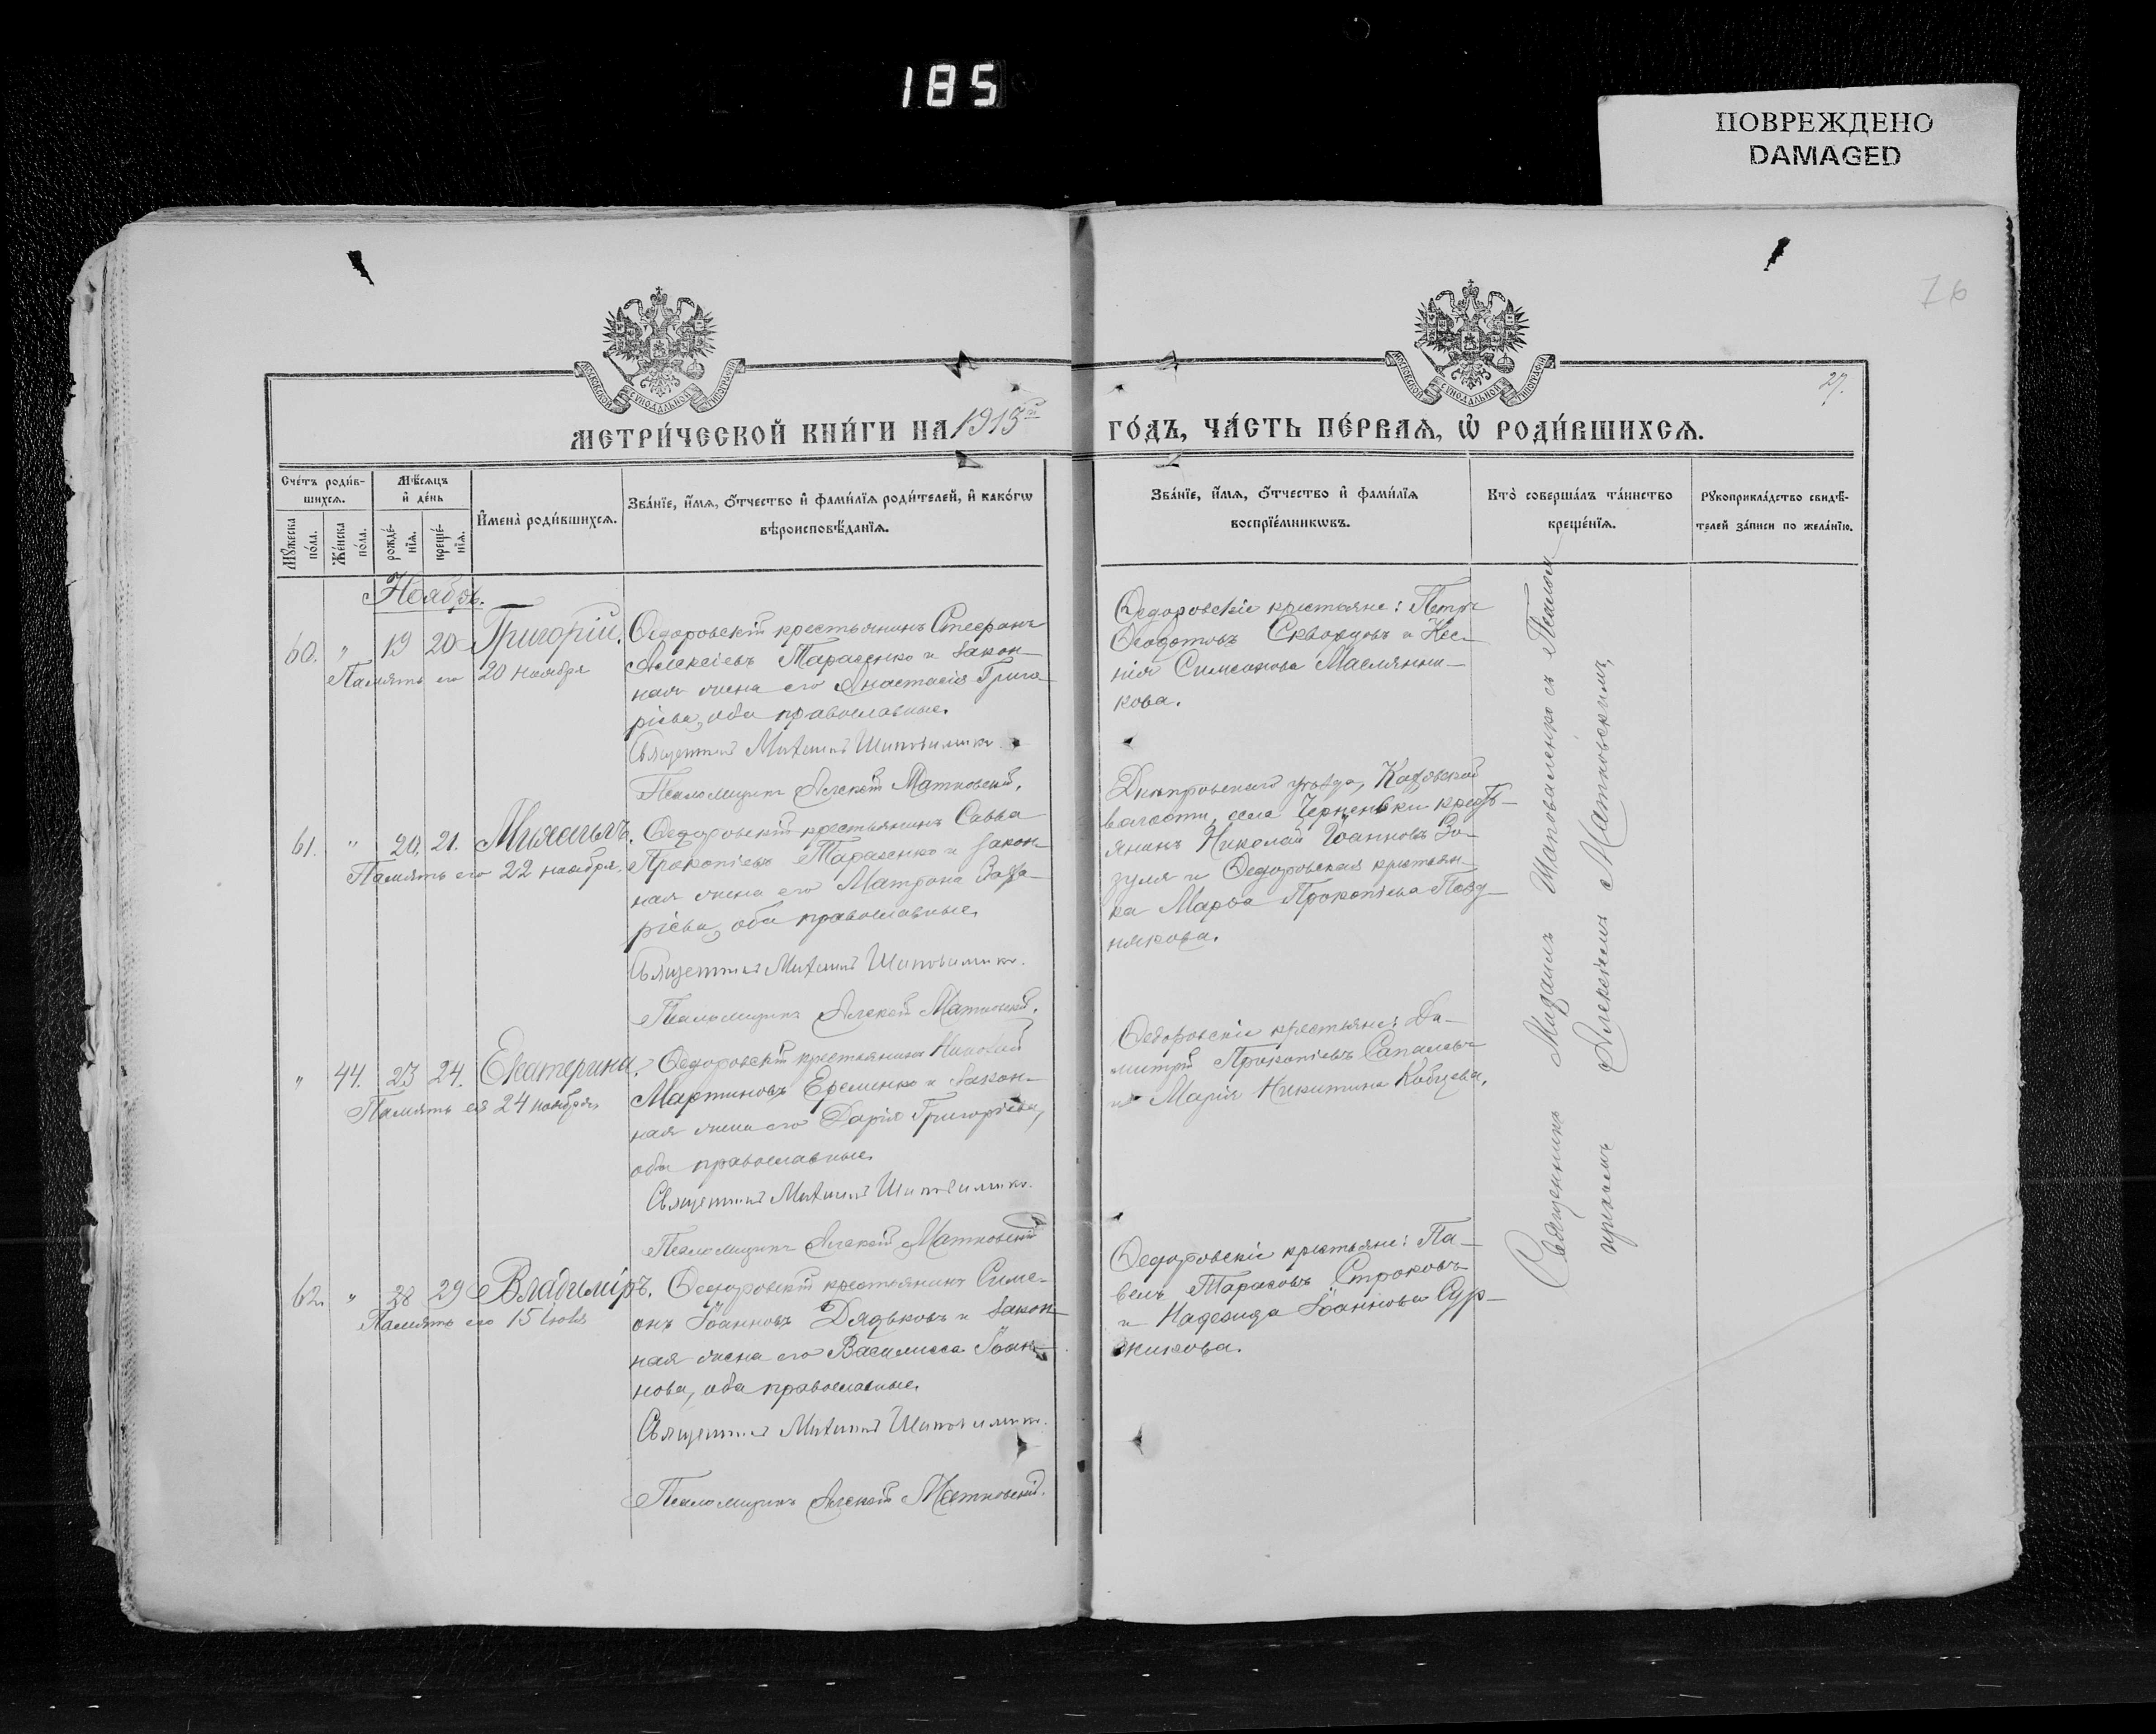 185
ПОВРЕЖДЕНО
DAMAGED
76
27.
МОСКОВСКОЙ СѴНОДАЛЬНОЙ ТИПОГРАФІИ
МОСКОВСКОЙ СѴНОДАЛЬНОЙ ТИПОГРАФІИ
МЕТРИ́ЧЕСКОЙ КНИ́ГИ НА 1915й ГО́ДЪ, ЧА́СТЬ ПЕ́РВАѦ, Ѽ РОДИ́ВШИХСѦ.
Сче́тъ роди́в-
шихсѧ.
Мꙋ́жеска
по́ла.
Же́нска
по́ла.
Мѣ́сѧцъ
и҆ де́нь
рожде́-
нїѧ.
креще́-
нїѧ.
И҆мена̀ роди́вшихсѧ.
Зва́нїе, и҆́мѧ, ѻ҆́тчество и҆ фами́лїѧ роди́телей, и҆ како́гѡ
вѣроисповѣ́данїѧ.
Зва́нїе, и҆́мѧ, ѻ҆́тчество и҆ фами́лїѧ
воспрїе́мникѡвъ.
Кто̀ соверша́лъ та́инство
креще́нїѧ.
Рꙋкоприкла́дство свидѣ́-
телей за́писи по жела́нїю.
Ноябрь.
60. " 19 20 Григорій.
Память его 20 ноября
Ѳедоровскій крестьянинъ Стефанъ
Алексіевъ Тарасенко и закон-
ная жена его Анастасія Григо-
рієва, оба православные.
Священникъ Михаилъ Шаповаленко.
Псаломщикъ Алексій Матковскій.
Ѳедоровскіе крестьяне: Петръ
Ѳеодотовъ Скворцовъ и Ксе-
нія Симеонова Маслянни-
кова.
61. " 20. 21. Михаилъ.
Память его 22 ноября.
Ѳедоровскій крестьянинъ Савва
Прокопіевъ Тарасенко и закон-
ная жена его Матрона Заха-
рієва, оба православные.
Священникъ Михаилъ Шаповаленко.
Псаломщикъ Алексій Матковскій.
Днѣпровскаго уѣзда, Каховской
волости, села Черненьки крестЬ-
янинъ Николай Іоанновъ Зо-
зуля и Ѳедоровская крестьян-
ка Марѳа Прокопіева Позд-
някова.
" 44. 23 24. Екатерина.
Память ея 24 ноября
Ѳедоровскій крестьянинъ Николай
Мартиновъ Еременко и закон-
ная жена его Дарія Григоріева,
оба православные.
Священникъ Михаилъ Шаповаленко.
Псаломщикъ Алексій Матковскій
Ѳедоровскіе крестьяне: Ди-
митрій Прокопіевъ
и Марія Никитина Кобцева.
62. " 28 29 Владиміръ.
Память его 15 іюля
Ѳедоровскій крестьянинъ Симе-
онъ Іоанновъ Дядьковъ и закон-
ная жена его Василисса Іоан-
нова, оба православные.
Священникъ Михаилъ Шаповаленко.
Псаломщикъ Алексій Матковскій.
Ѳедоровскіе крестьяне: Па-
велъ Тарасовъ Строковъ
и Надежда Іоаннова
Священникъ Михаилъ Шаповаленко съ Псалом-
щикомъ Алексіемъ Матковскимъ.